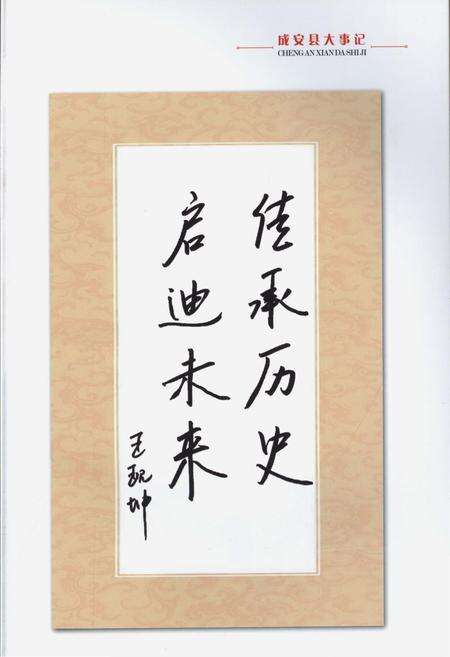 成安县大事记
CHENG AN XIAN DA SHI JI
传承历史
启迪未来
王现坤